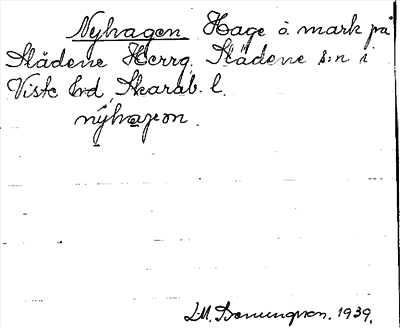 Nyhagen Hage o. mark på
Slädene Herrg. Slädene s:n i
Viste hd, Skarab. l.
nýhagen.
1939.